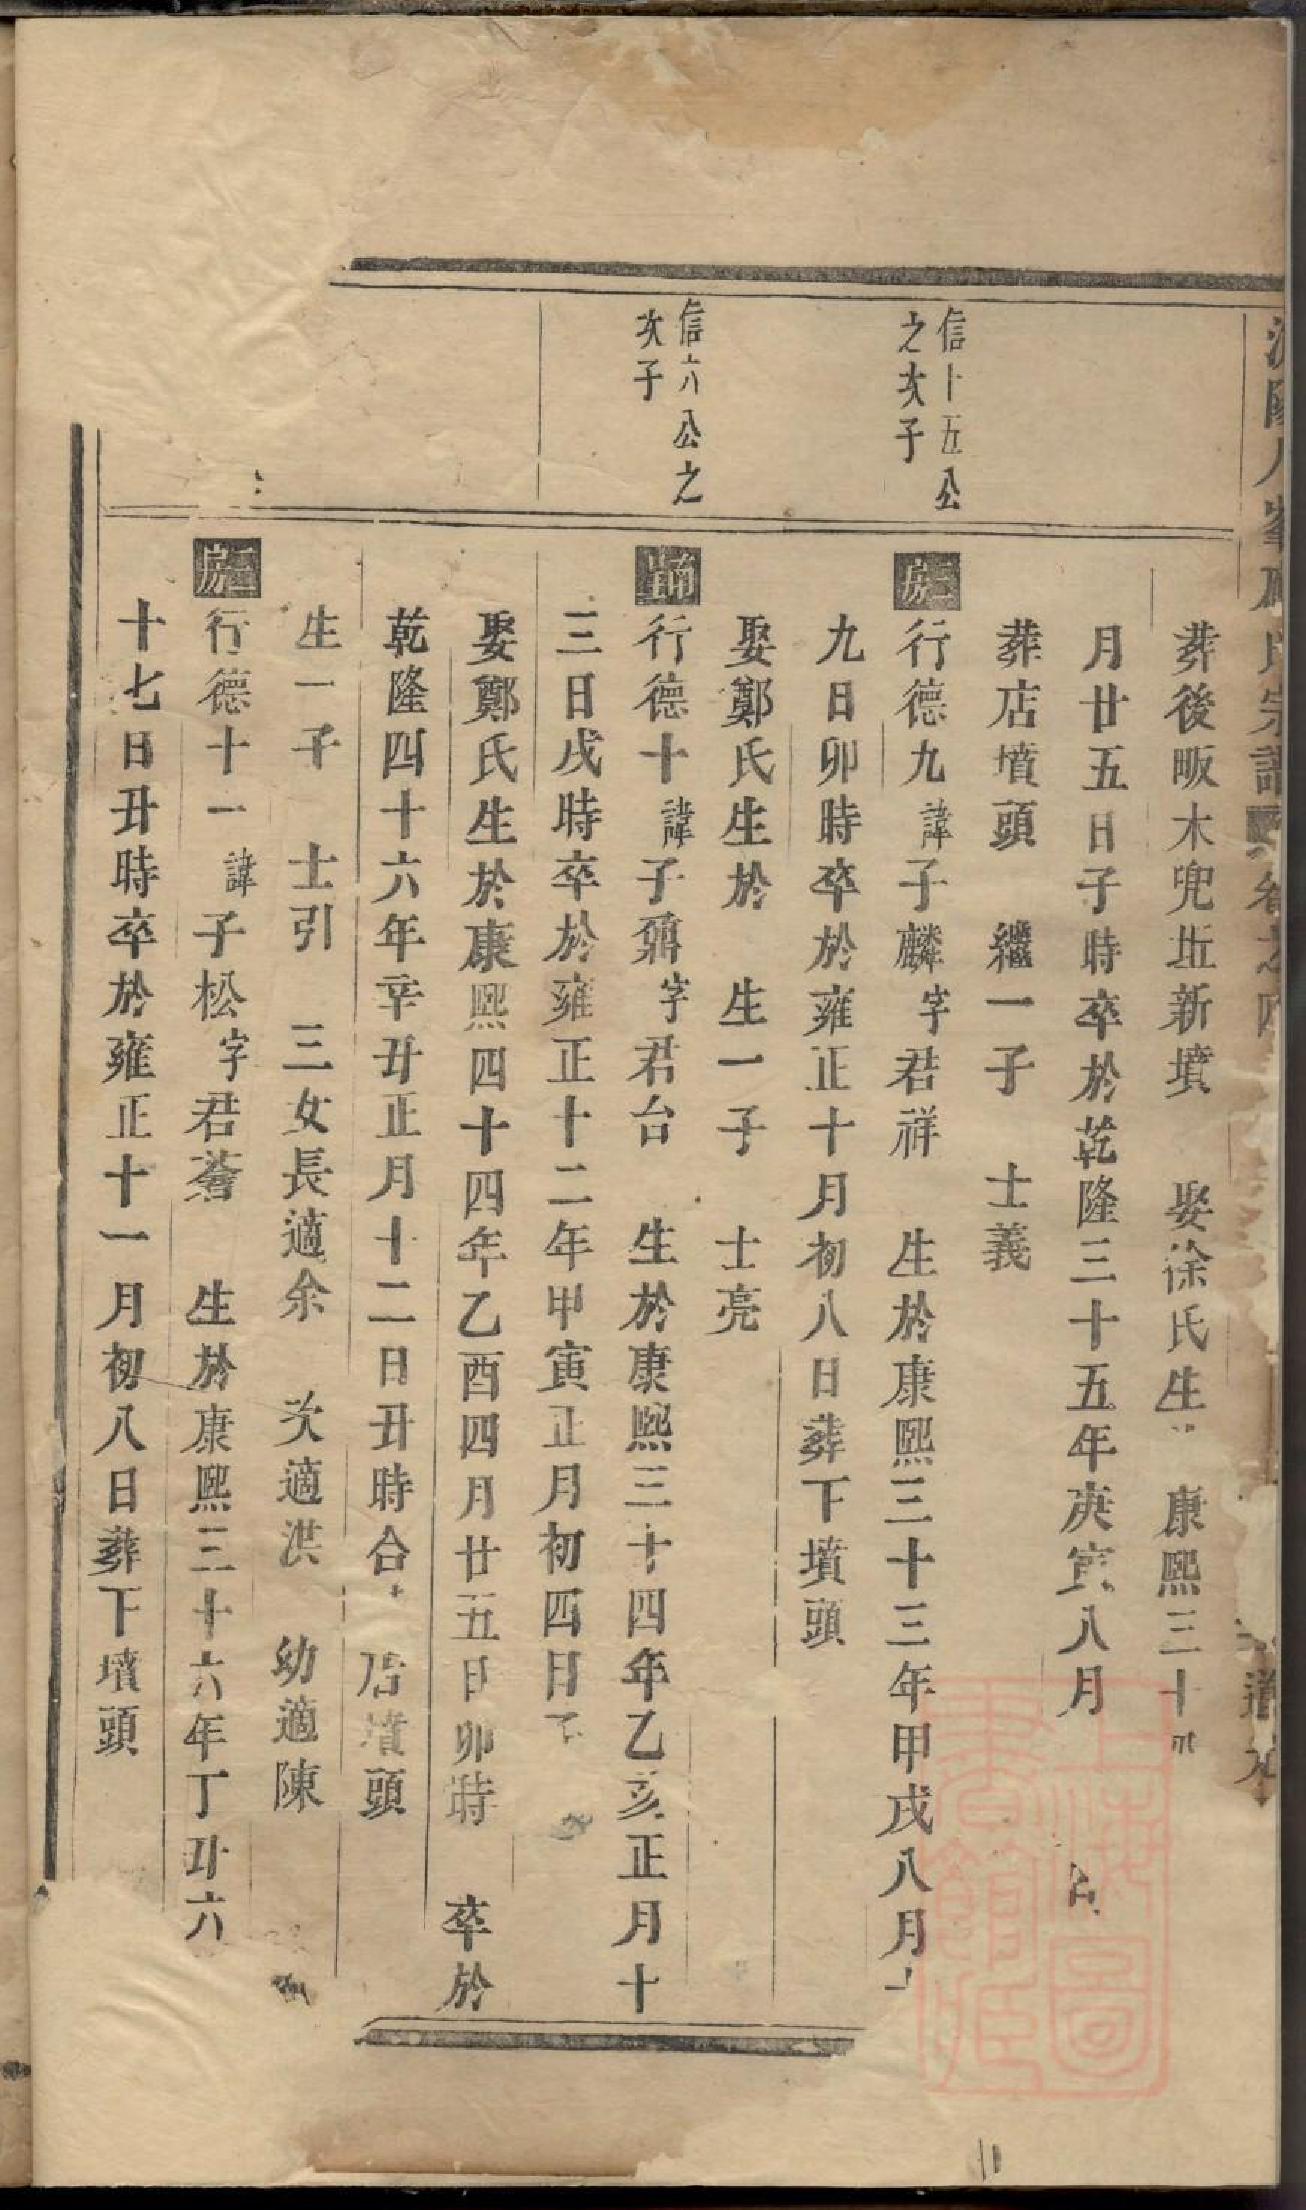 宗譜
卷之四
葬後畈木兜坵新墳 娶徐氏生 康熙三十
月廿五日子時卒於乾隆三十五年庚寅八月
葬店墳頭 繼一子 士義
信十五公
之次子
三房 行德九諱子麟字君祥 生於康熙三十三年甲戌八月
九日卯時卒於雍正十月初八日葬下墳頭
娶鄭氏生於 生一子 士亮
信六公之
次子
行德十諱子鼐字君台 生於康熙三十四年乙亥正月十
三日戌時卒於雍正十二年甲寅正月初四日
娶鄭氏生於康熙四十四年乙酉四月廿五日卯時 卒於
乾隆四十六年辛丑正月十二日丑時合 店墳頭
生一子 士引 三女長適余 次適洪 幼適陳
三房 行德十一諱子松字君蒼 生於康熙三十六年丁丑六
十七日丑時卒於雍正十一月初八日葬下墳頭
上海圖
書館藏